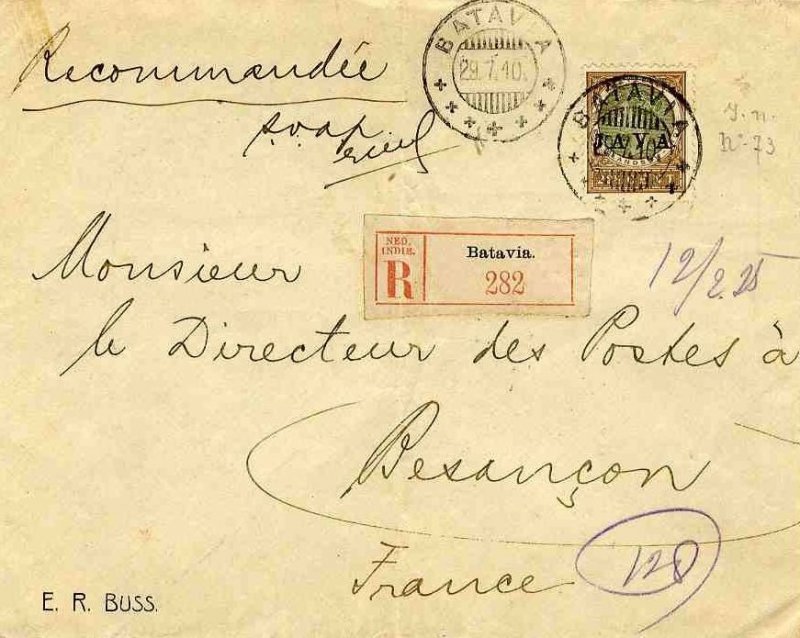 Recommandée
BATAVIA
29.7.10.
BATAVIA
JAVA
NED.
INDIË.
R
Batavia.
282
No 73
12/2.25
Monsieur
le Directeur des Postes à
Besançon
France
120
E. R. BUSS.